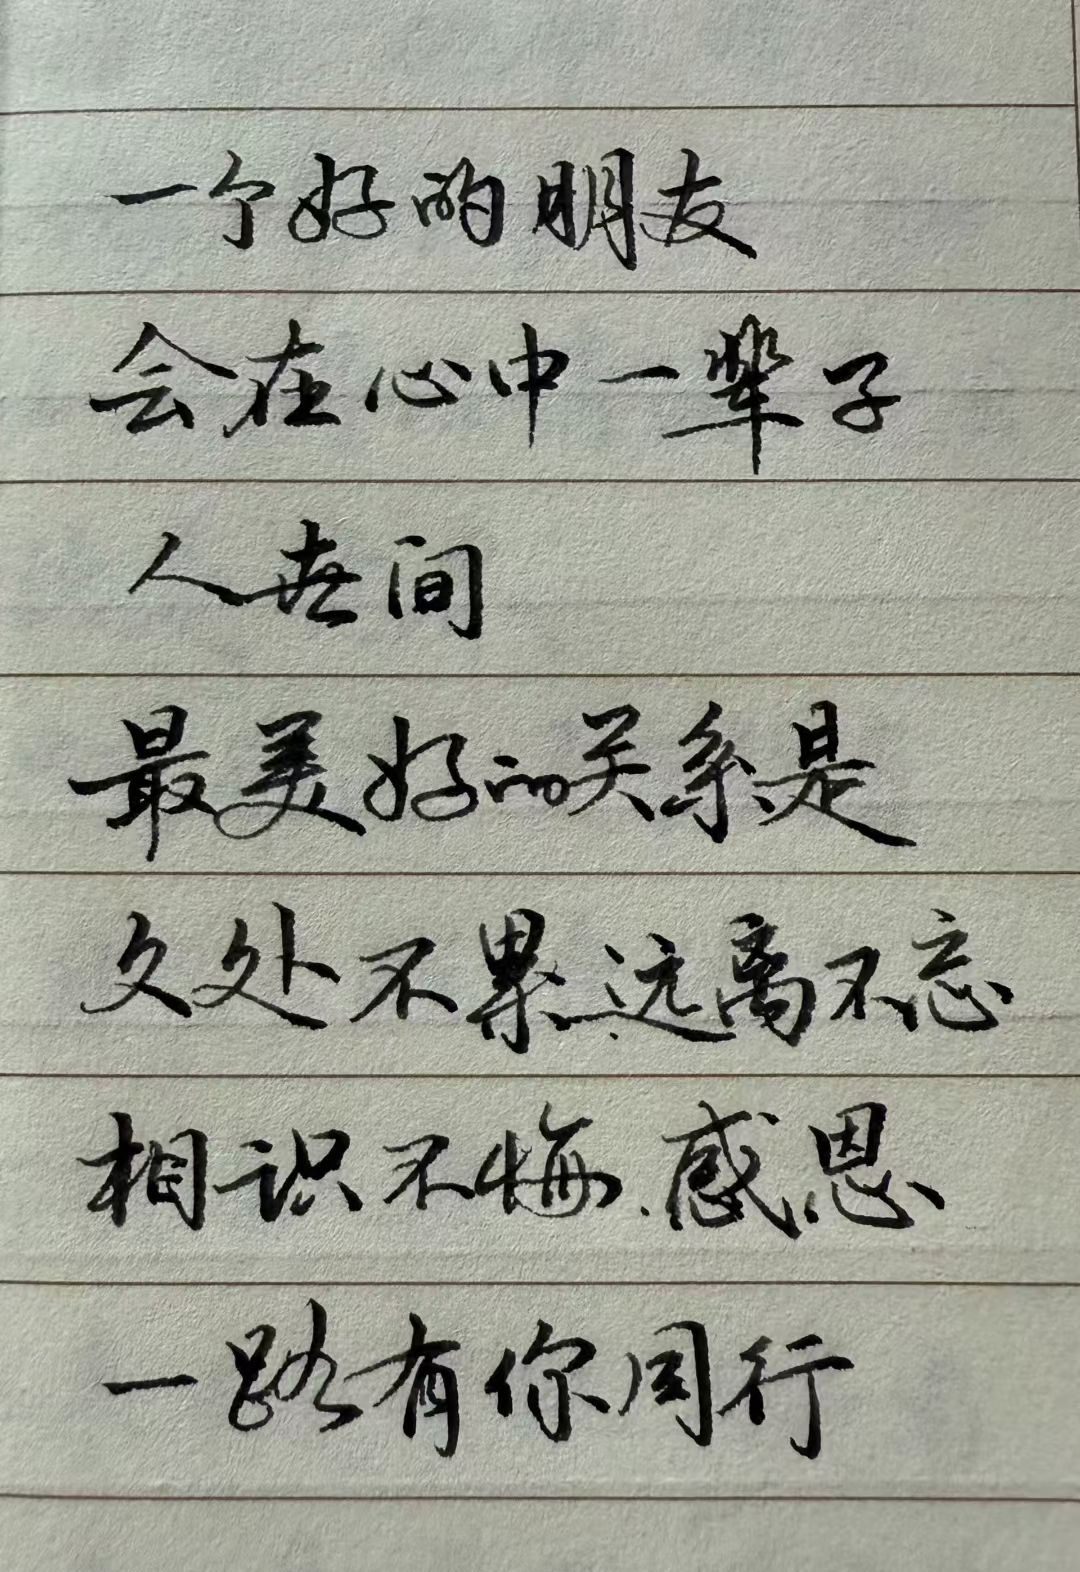 一个好的朋友
会在心中一辈子
人世间
最美好的关系是
久处不累远离不忘
相识不悔.感恩
一路有你同行